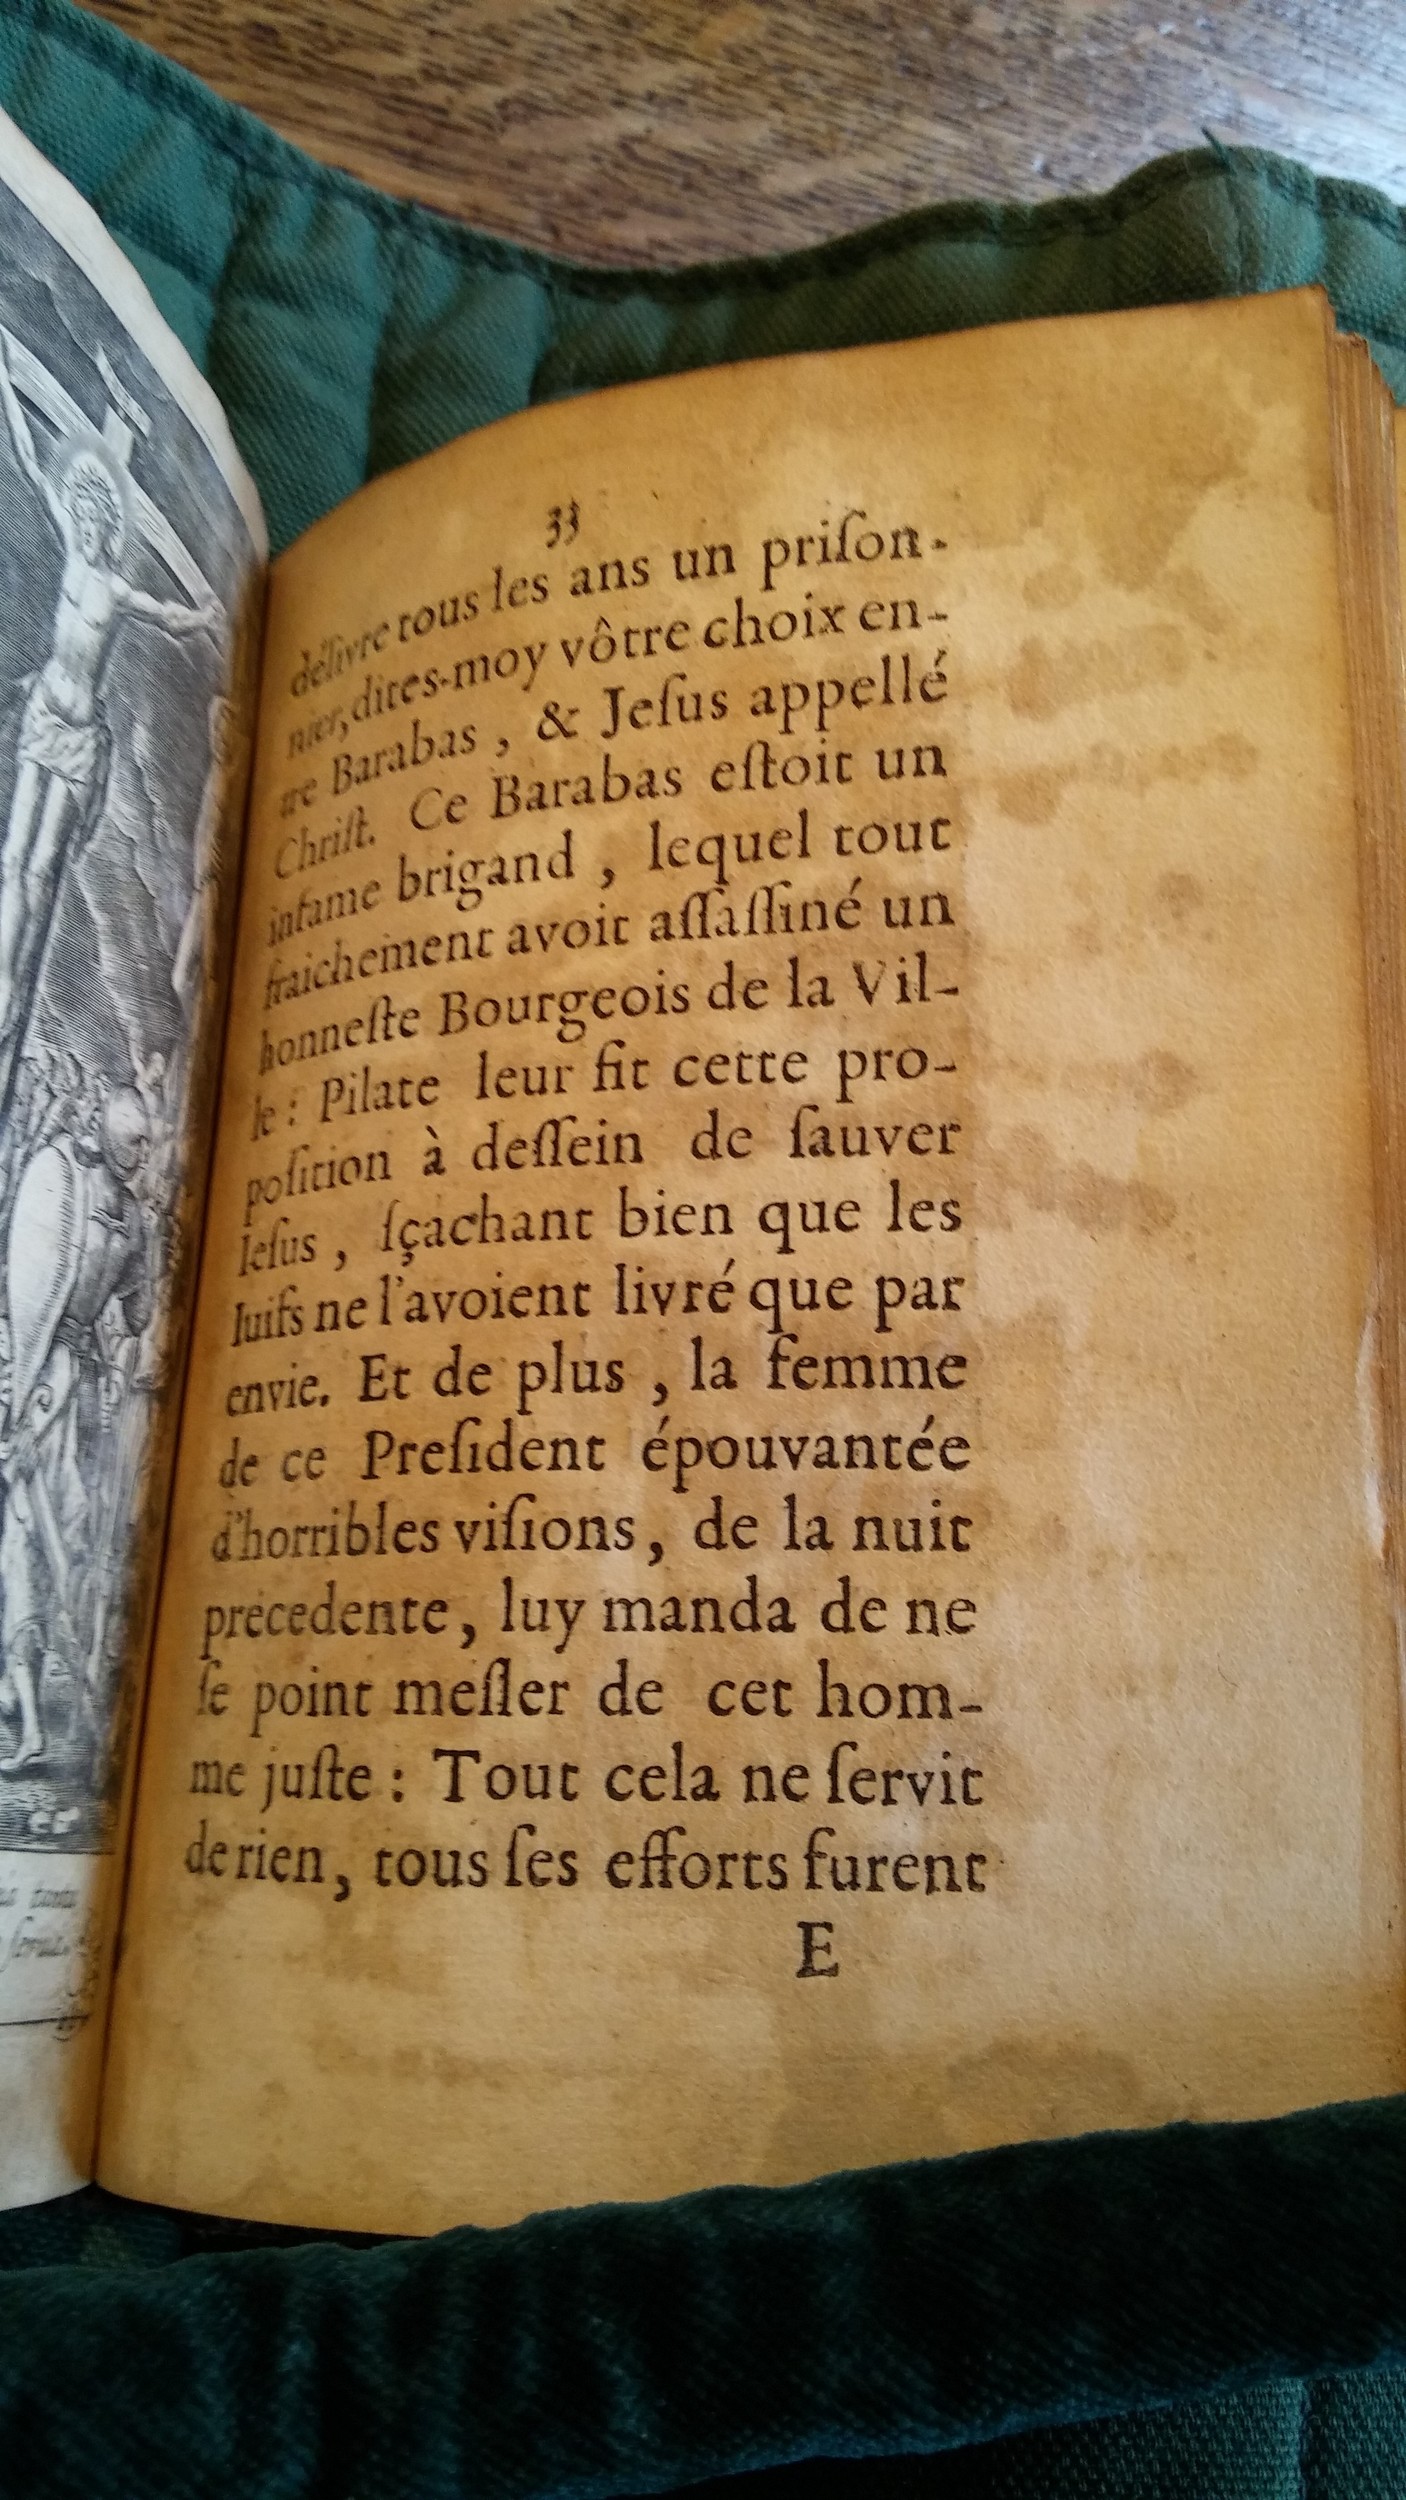 33
délivre tous les ans un priſon-
nier, dites-moy vôtre choix en-
tre Barabas, & Jeſus appellé
Chriſt. Ce Barabas eſtoit un
infame brigand, lequel tout
fraichement avoit aſſaſſiné un
honneſte Bourgeois de la Vil-
le: Pilate leur fit cette pro-
poſition à deſſein de ſauver
Ieſus, ſçachant bien que les
Iuifs ne l'avoient livré que par
envie. Et de plus, la femme
de ce Preſident épouvantée
d'horribles viſions, de la nuit
precedente, luy manda de ne
ſe point meſler de cet hom-
me juſte: Tout cela ne ſervit
de rien, tous ſes efforts furent
E